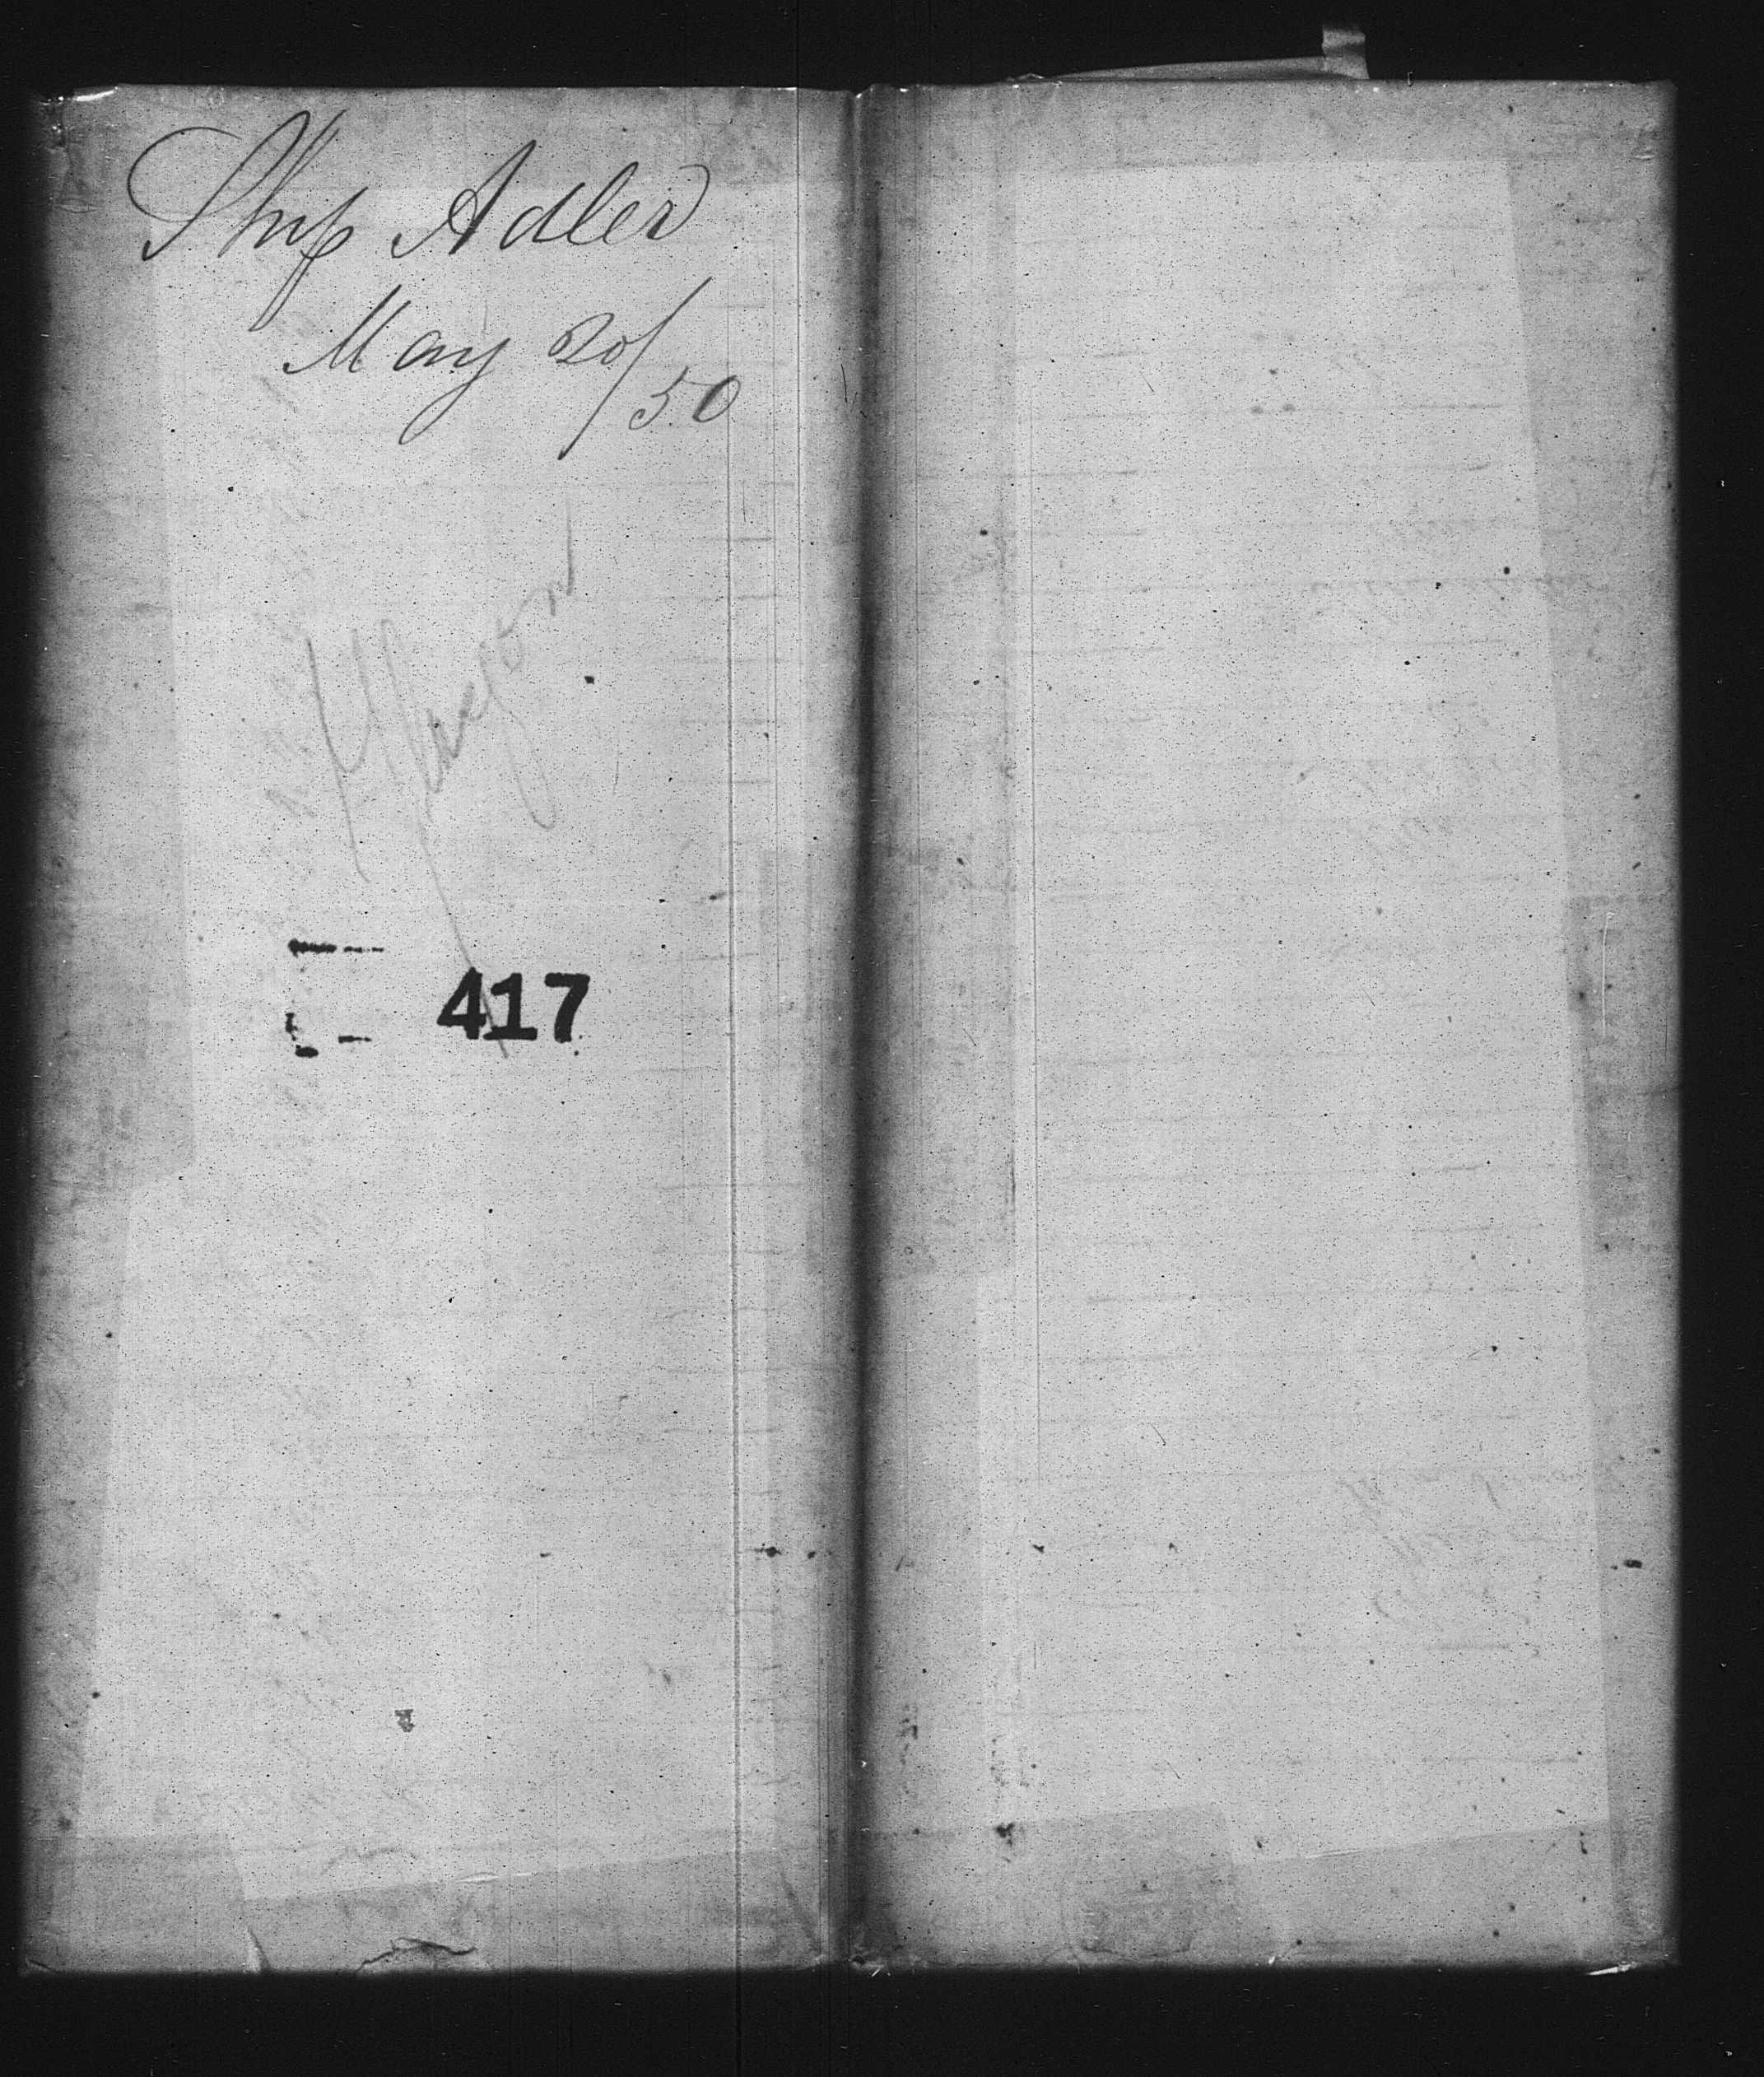 Ship Adler
May 20/50
417